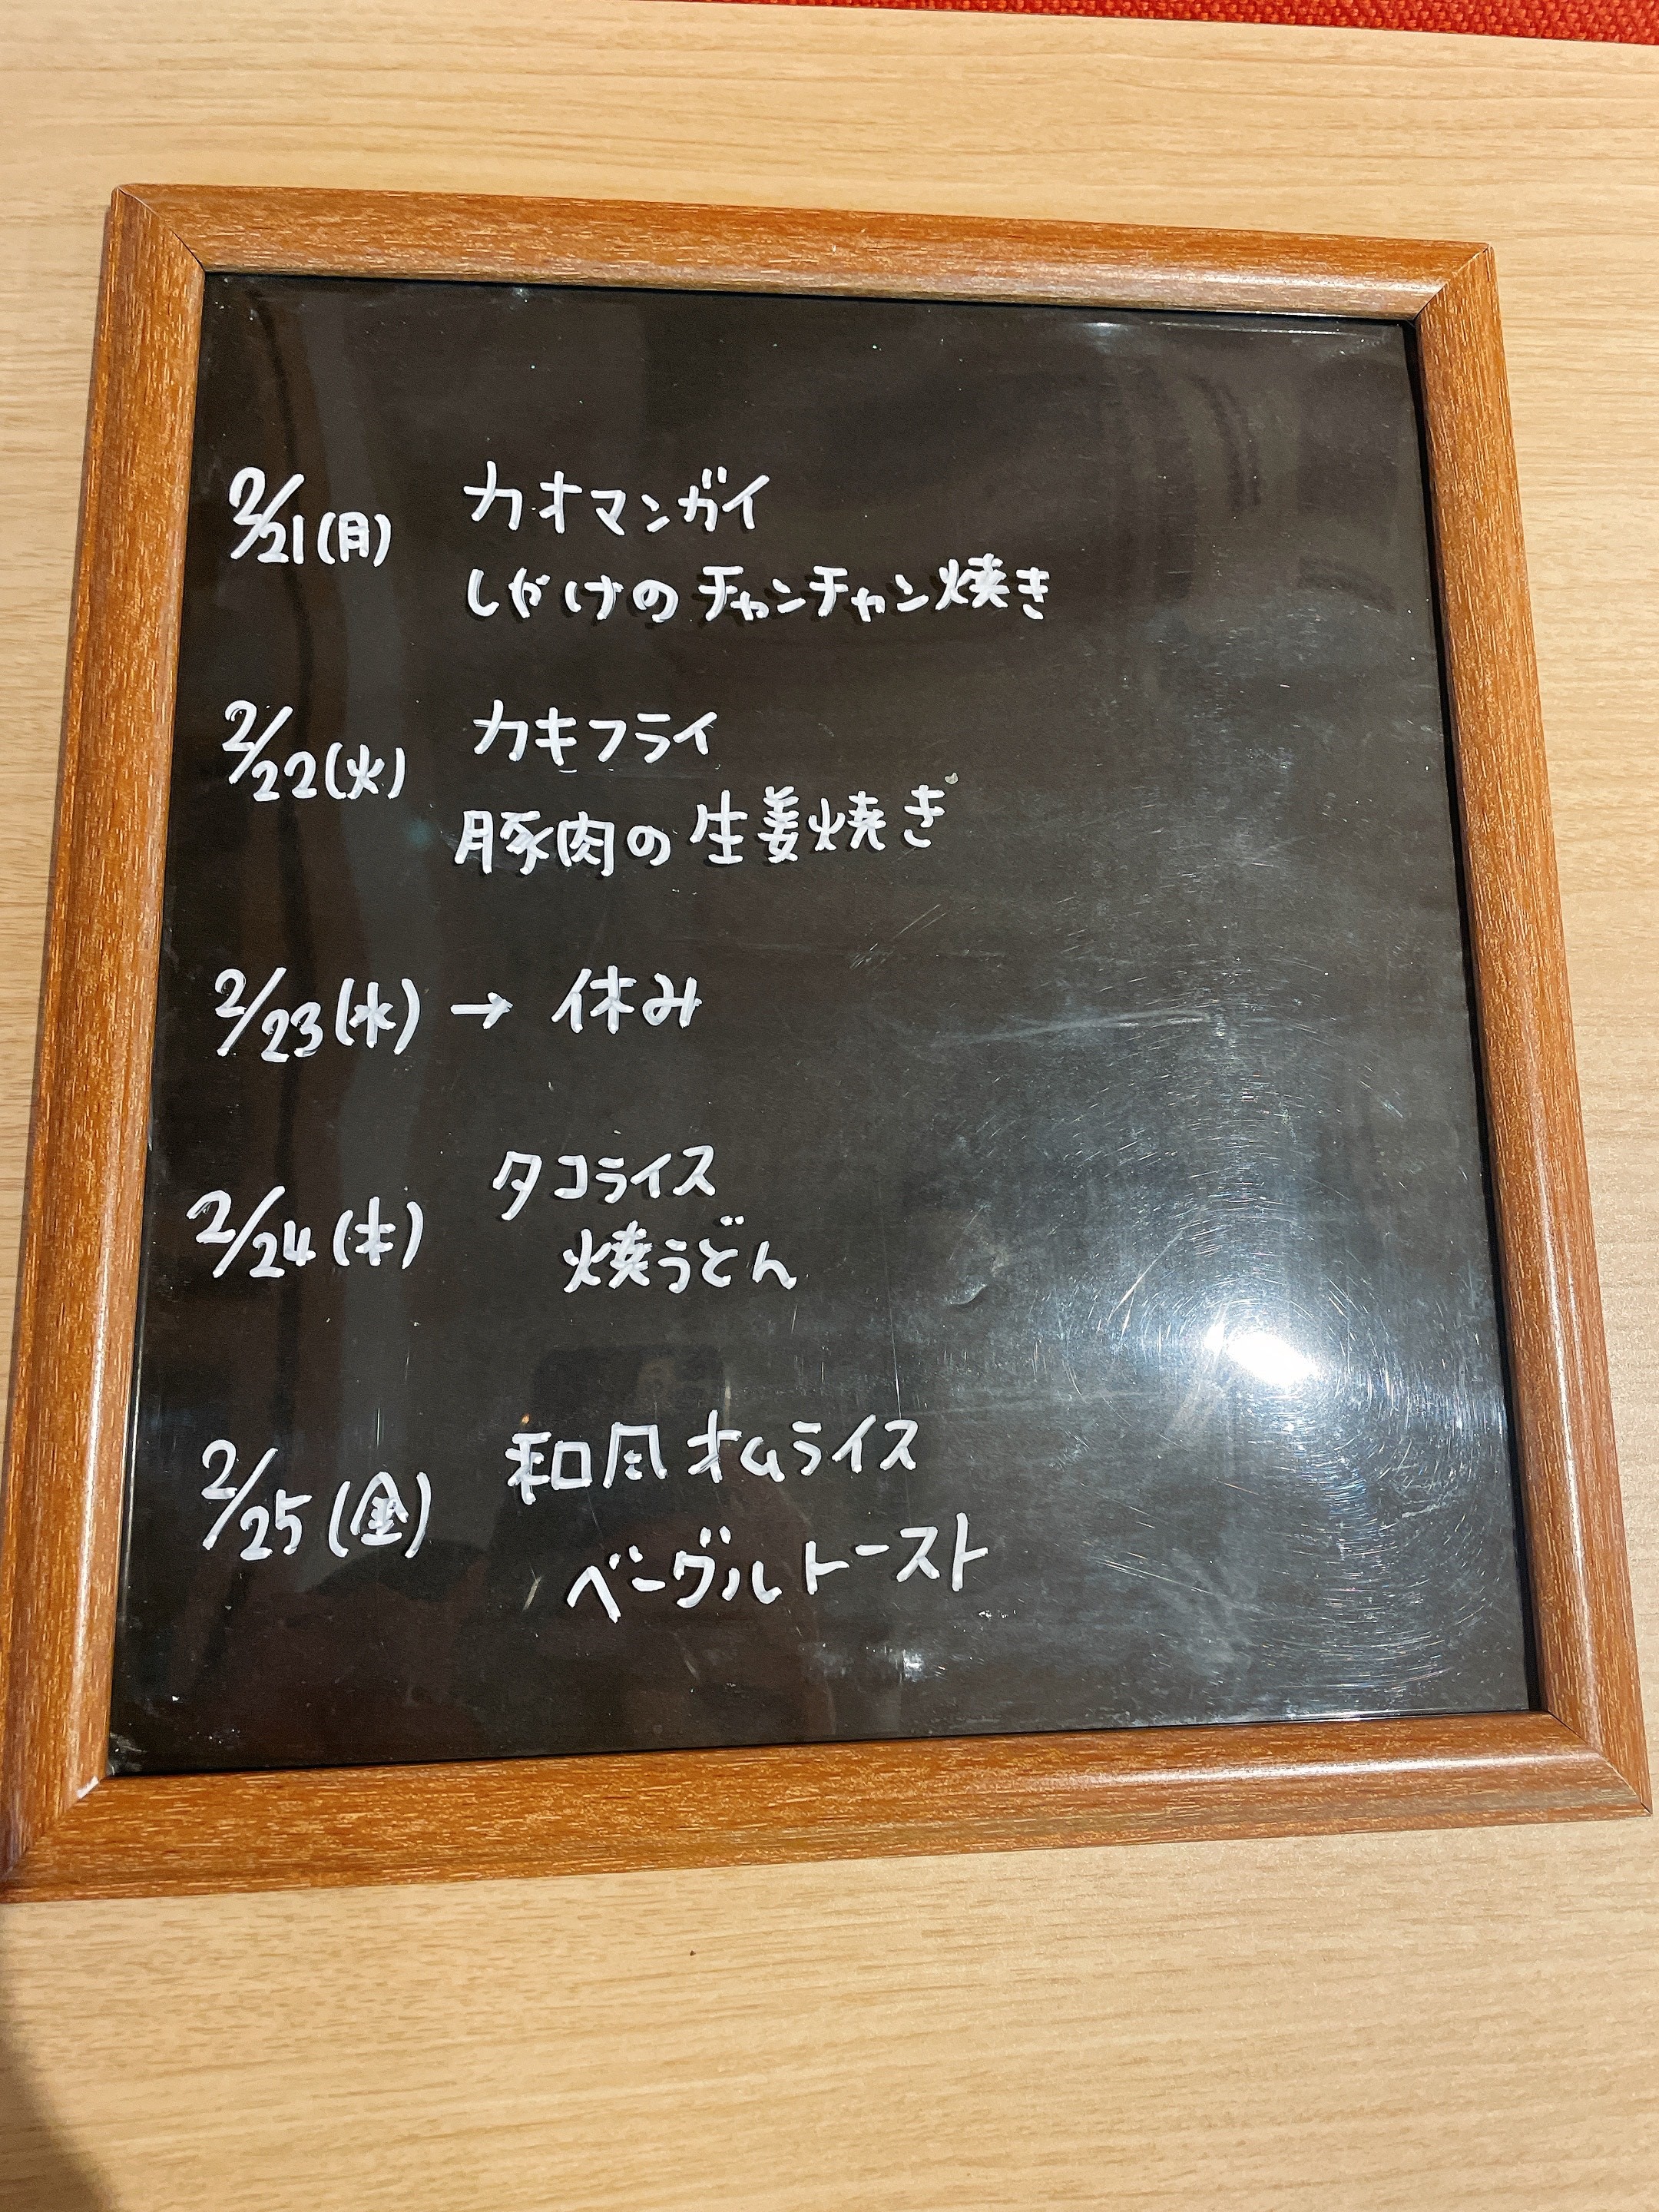 2/21(月) カオマンガイ
しゃけのチャンチャン焼き
2/22(火) カキフライ
豚肉の生姜焼き
2/23(水) → 休み
2/24(木) タコライス
焼うどん
2/25(金) 和風オムライス
ベーグルトースト